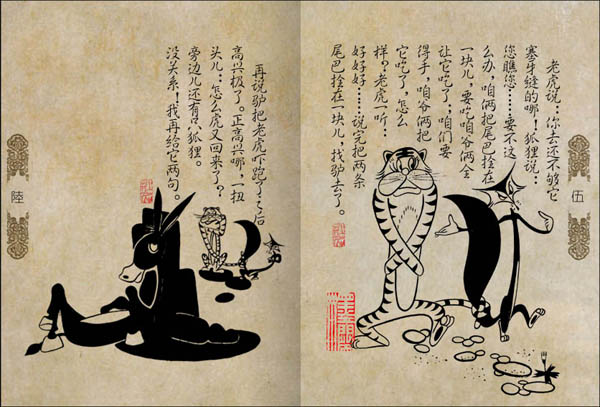 伍
老虎说：你去还不够它
塞牙缝的哪！狐狸说：
您瞧您……要不这
么办，咱俩把尾巴拴在
一块儿，要吃咱爷俩全
让它吃了，咱们要
得手，咱爷俩把
它吃了，怎么
样？老虎一听：
好好好……说完把两条
尾巴拴在一块儿，找驴去了。
再说驴把老虎吓跑了之后
高兴极了。正高兴哪，一扭
头儿：怎么虎又回来了？
旁边儿还有只狐狸。
没关系！我再给它两句。
陸